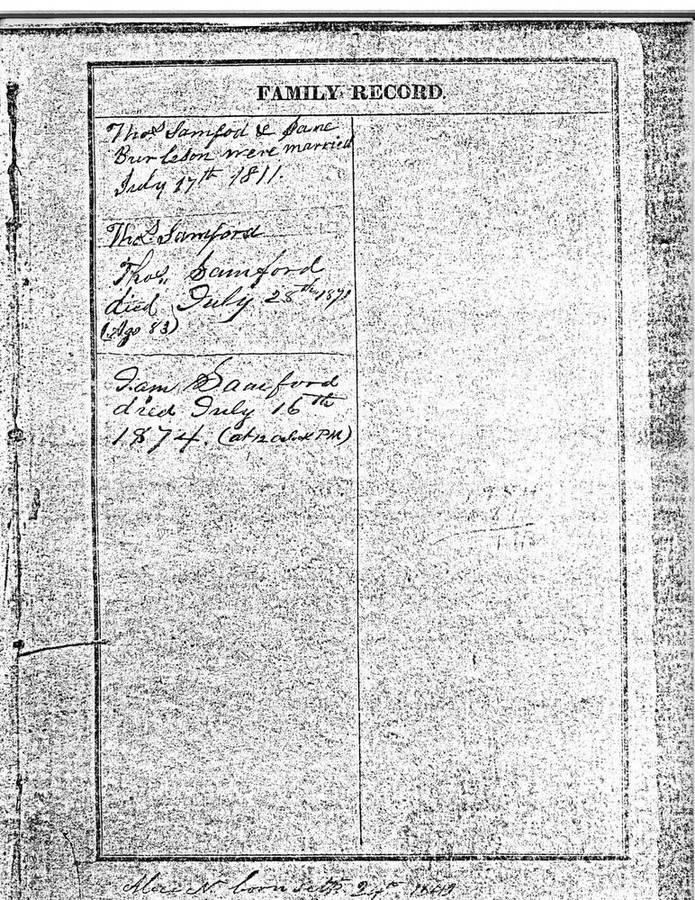 FAMILY RECORD.
Thos Samford & Jane
Burleson were married
July 17th 1811.
Thos Samford
Thos. Samford
died July 28th 187
(Age 83)
Samford
died July 16th
1874. (at 12 oclock PM)
born 24th